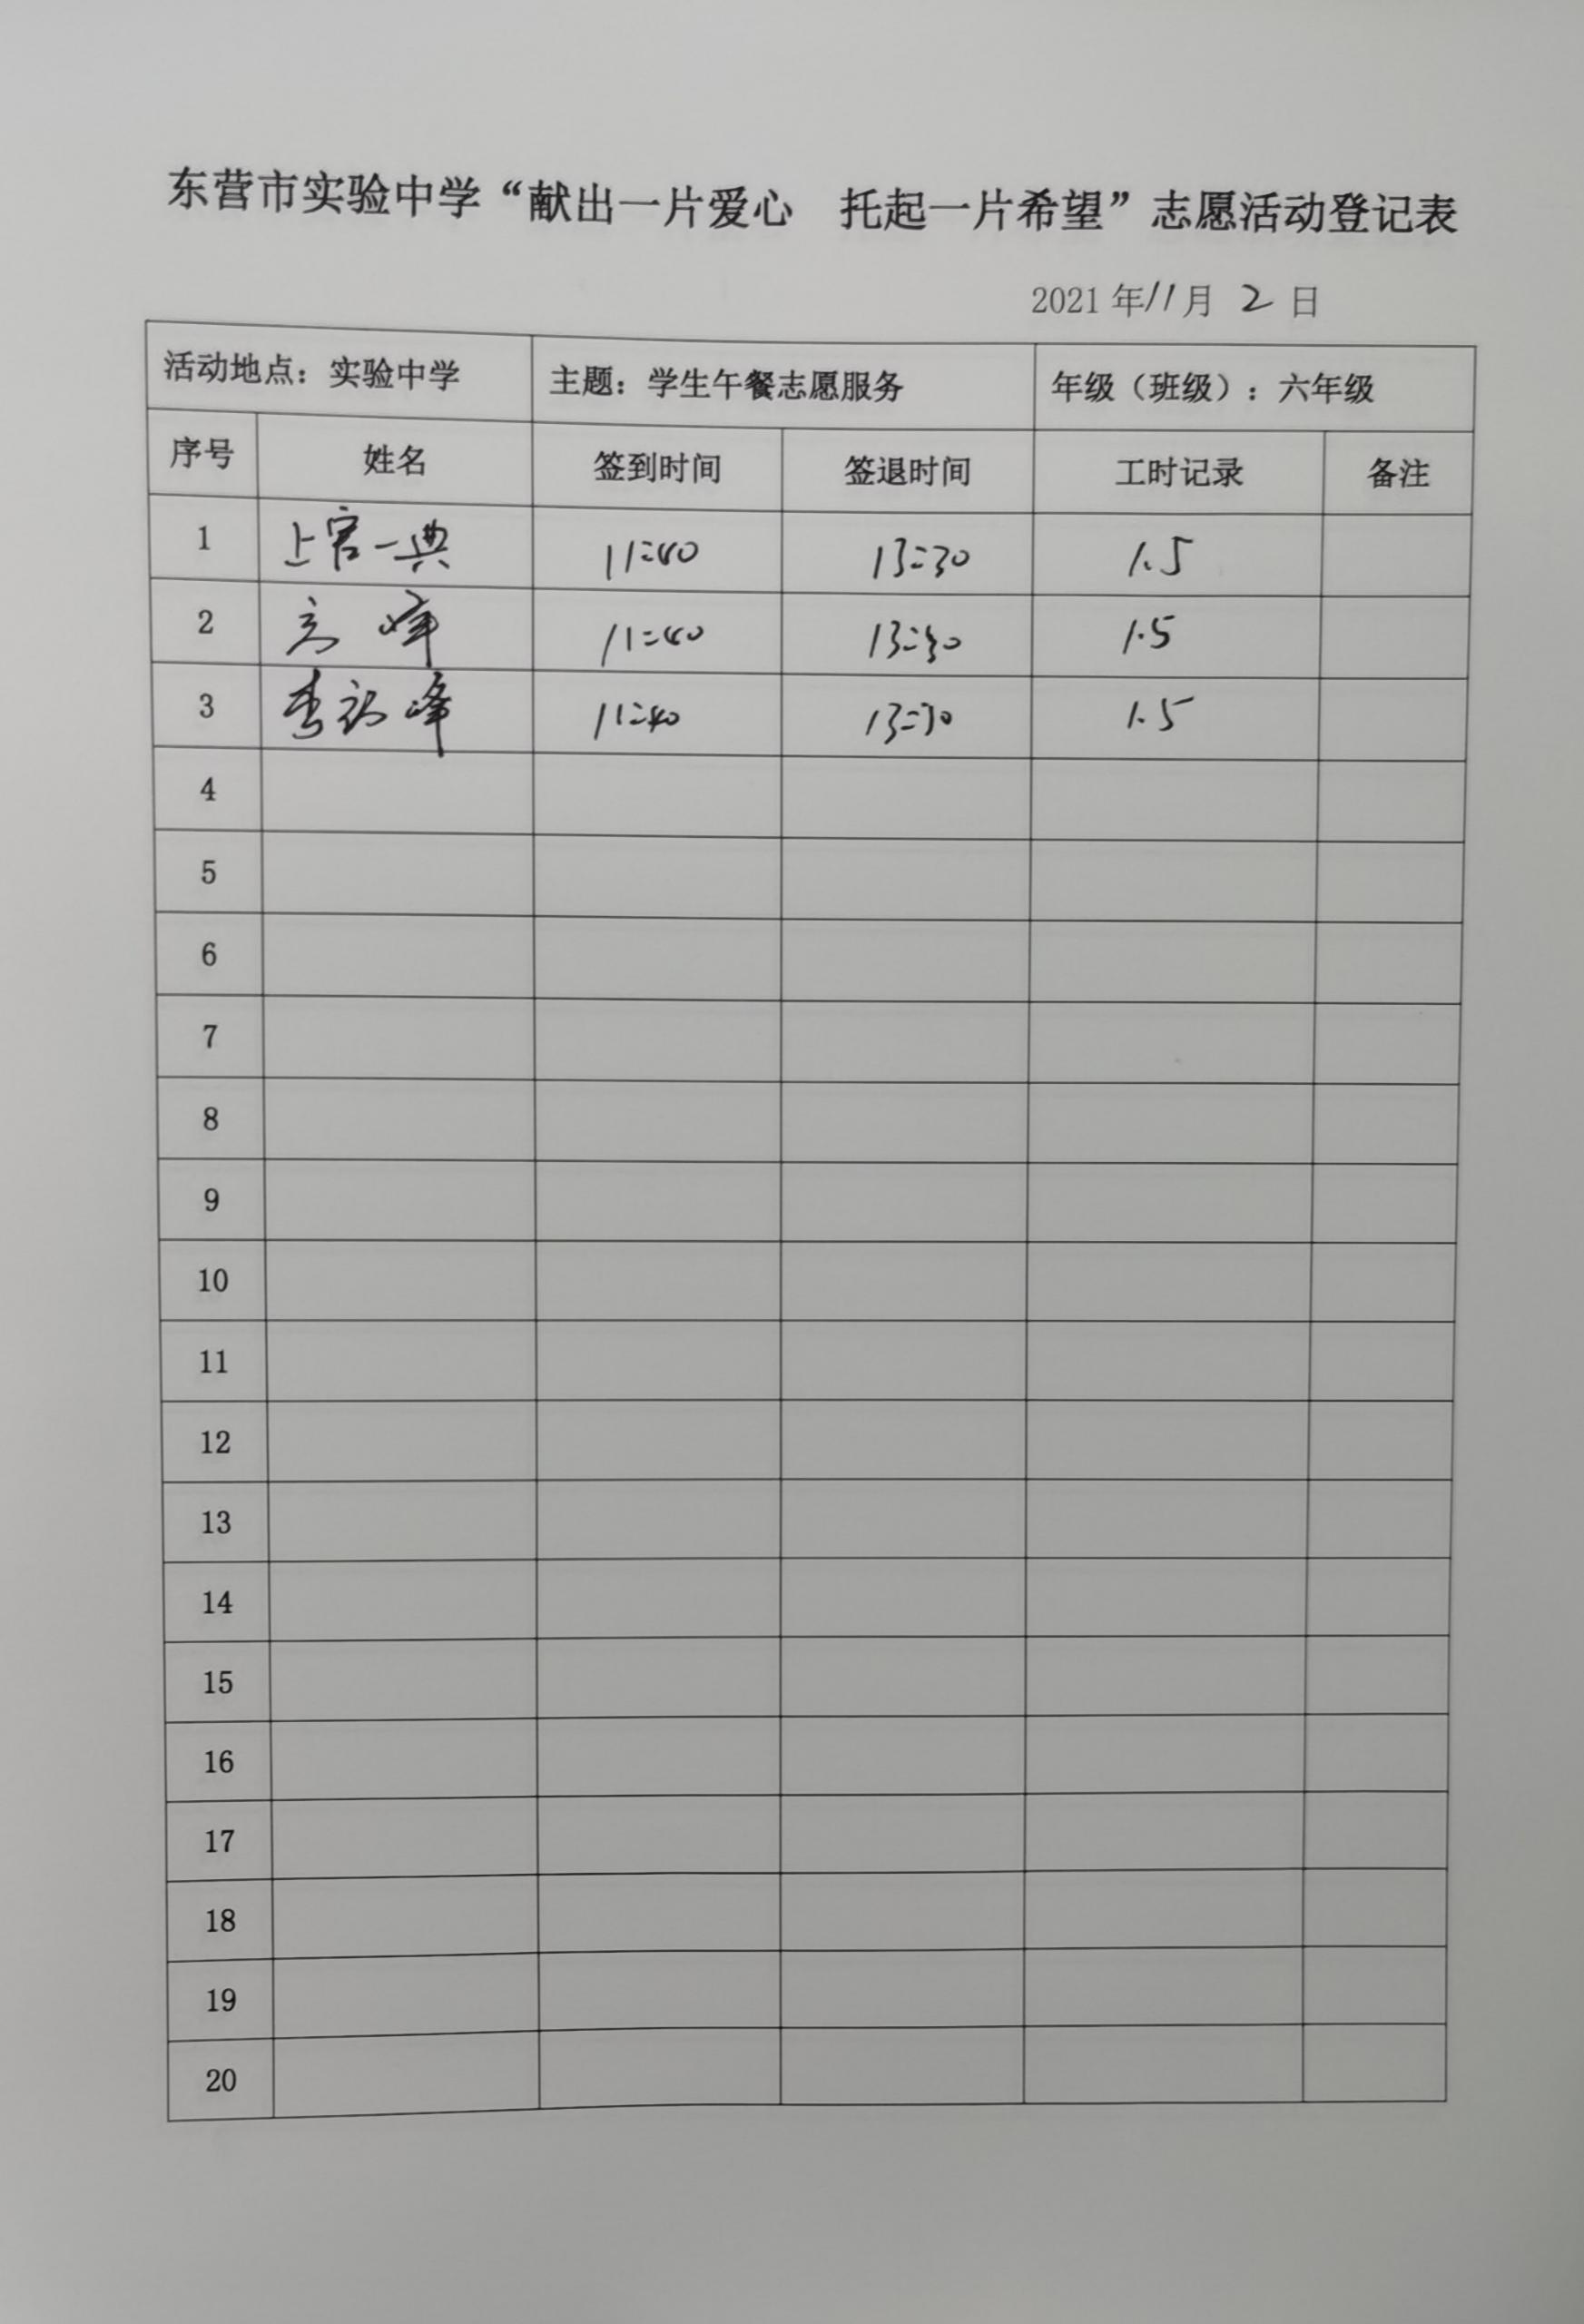 东营市实验中学“献出一片爱心 托起一片希望”志愿活动登记表
2021年11月2日
活动地点：实验中学 主题：学生午餐志愿服务 年级（班级）：六年级
序号 姓名 签到时间 签退时间 工时记录 备注
1 上官一典 11:40 13:30 1.5
2 高峰 11:40 13:30 1.5
3 李 峰 11:40 13:30 1.5
4
5
6
7
8
9
10
11
12
13
14
15
16
17
18
19
20